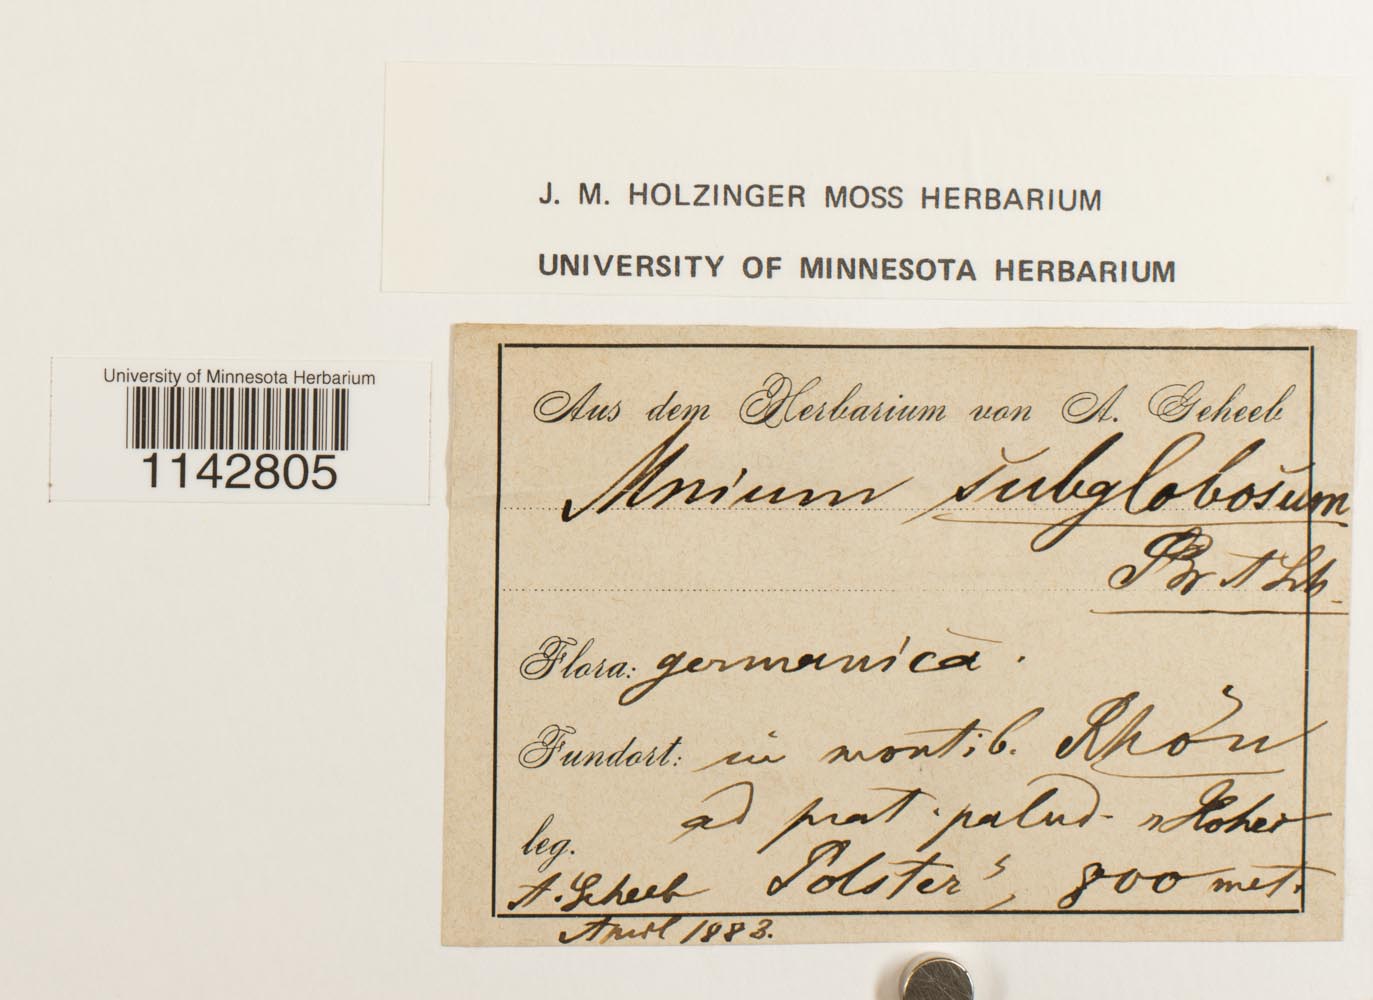 J. M. HOLZINGER MOSS HERBARIUM
UNIVERSITY OF MINNESOTA HERBARIUM
University of Minnesota Herbarium
1142805
Aus dem Herbarium von A. Geheeb
Mnium subglobosum
Br & Sch.
Flora: germanica.
Fundort: in montib. Rhön
ad prat. palud. "Hoher
leg.
A. Geheeb Polster", 800 met.
April 1883.